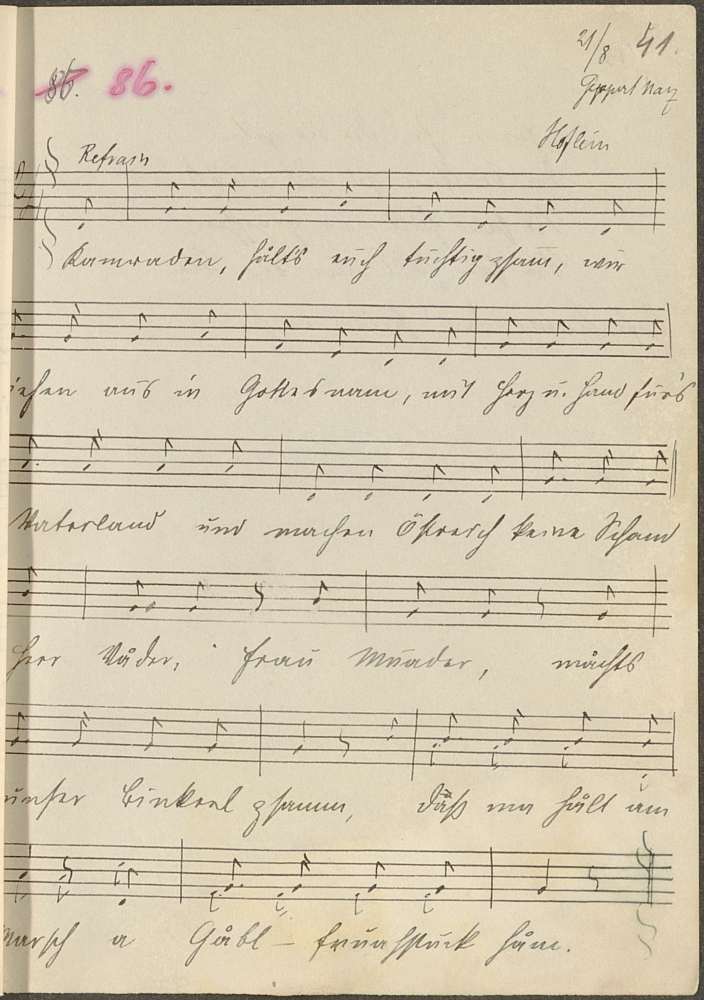 21/8 41.
86. 86.
Geppert Marz
Höflein
Refrain
Kamraden, hålt's euch tüchtig zsam, wir
ziehen aus in Gottesnam, mit Herz u. Hand für's
Vaterland und machen Östreich keine Schand
Herr Våder, Frau Muader, måchts
unser Binkerl zsamm, dåß ma hålt am
Marsch a Gåbl - Fruahstuck håm.